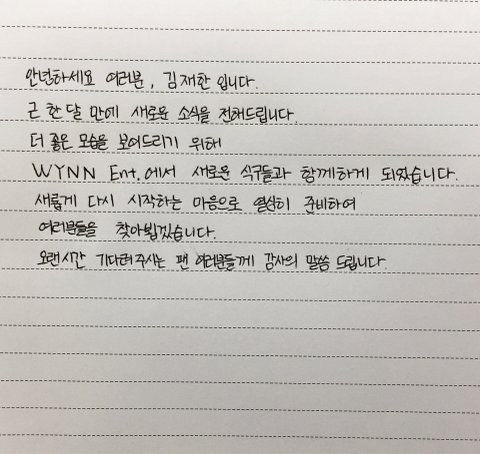 안녕하세요 여러분, 김재한 입니다.
근 한달 만에 새로운 소식을 전해드립니다.
더 좋은 모습을 보여드리기 위해
WYNN Ent.에서 새로운 식구들과 함께하게 되었습니다.
새롭게 다시 시작하는 마음으로 열심히 준비하여
여러분들을 찾아뵙겠습니다.
오랜시간 기다려주시는 팬 여러분들께 감사의 말씀 드립니다.